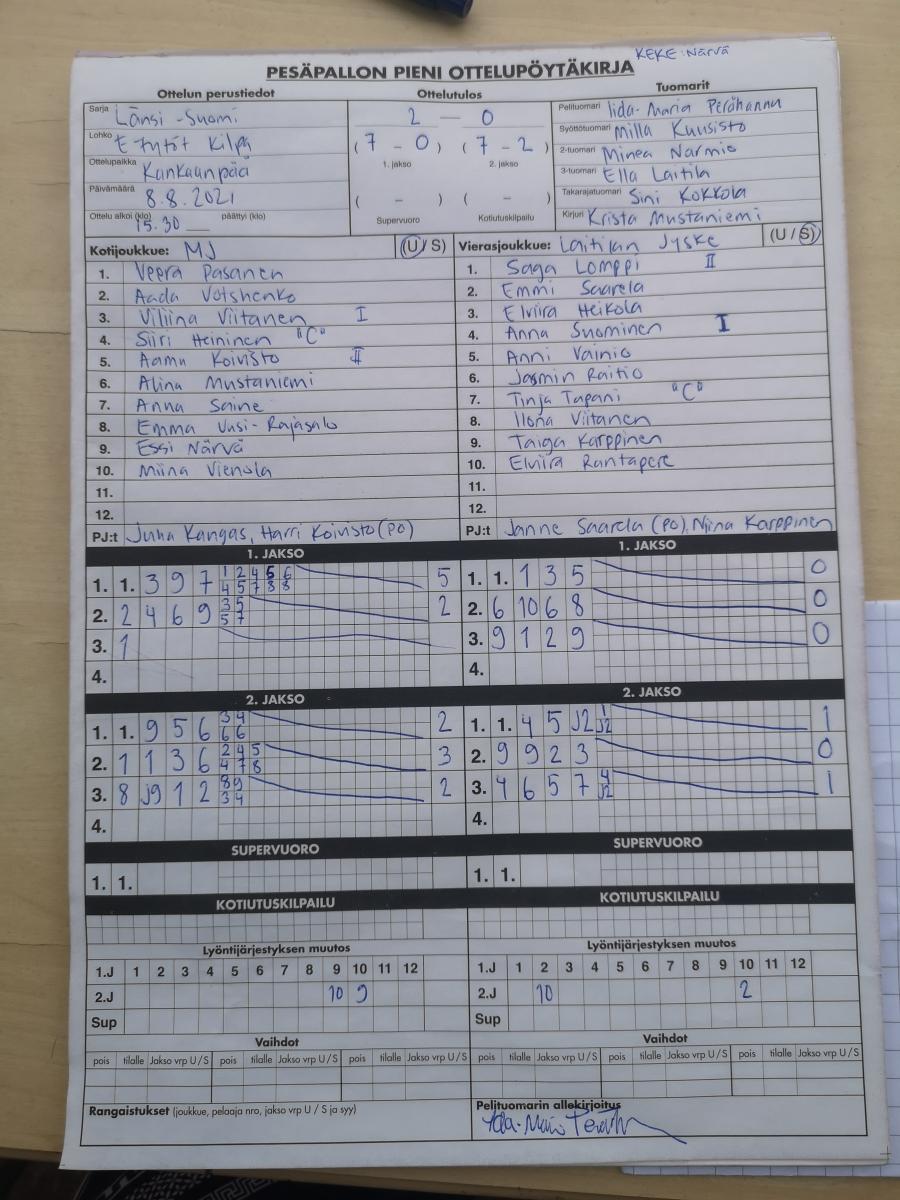 KEKE: Närvä
PESÄPALLON PIENI OTTELUPÖYTÄKIRJA
Ottelun perustiedot Ottelutulos Tuomarit
Sarja Länsi-Suomi
Lohko E tytöt Kilpa
Ottelupaikka Kankaanpää
Päivämäärä 8.8.2021
Ottelu alkoi (klo) 15.30 päättyi (klo)
2 — 0
(7 - 0) (7 - 2)
1. jakso 2. jakso
( - ) ( - )
Supervuoro Kotiutuskilpailu
Pelituomari Iida-Maria Perähannu
Syöttötuomari Milla Kuusisto
2-tuomari Minea Narmio
3-tuomari Ella Laitila
Takarajatuomari Sini Kokkola
Kirjuri Krista Mustaniemi
Kotijoukkue: MJ (U / S)
1. Veera Pasanen
2. Aada Votshenko
3. Viliina Viitanen I
4. Siiri Heininen "C"
5. Aamu Koivisto II
6. Alina Mustaniemi
7. Anna Saine
8. Emma Uusi-Rajasalo
9. Essi Närvä
10. Miina Vienola
11.
12.
PJ:t Juha Kangas, Harri Koivisto (PO)
Vierasjoukkue: Laitilan Jyske (U / S)
1. Saga Lomppi II
2. Emmi Saarela
3. Elviira Heikola
4. Anna Suominen I
5. Anni Vainio
6. Jasmin Raitio
7. Tinja Tapani "C"
8. Ilona Viitanen
9. Taiga Karppinen
10. Elviira Rantapere
11.
12.
PJ:t Janne Saarela (PO), Niina Karppinen
1. JAKSO
1. 1. 3 9 7 1 2 4 5 6 5
4 5 7 8 8
2. 2 4 6 9 3 5 2
5 7
3. 1
4.
1. JAKSO
1. 1. 1 3 5 0
2. 6 10 6 8 0
3. 9 1 2 9 0
4.
2. JAKSO
1. 1. 9 5 6 3 4 2
6 6
2. 1 1 3 6 2 4 5 3
4 7 8
3. 8 J9 1 2 8 9 2
3 4
4.
2. JAKSO
1. 1. 4 5 J2 1 1
J2
2. 9 9 2 3 0
3. 4 6 5 7 4 1
J2
4.
SUPERVUORO
1. 1.
SUPERVUORO
1. 1.
KOTIUTUSKILPAILU
KOTIUTUSKILPAILU
Lyöntijärjestyksen muutos
1.J 1 2 3 4 5 6 7 8 9 10 11 12
2.J 10 9
Sup
Lyöntijärjestyksen muutos
1.J 1 2 3 4 5 6 7 8 9 10 11 12
2.J 10 2
Sup
Vaihdot
pois tilalle Jakso vrp U/S pois tilalle Jakso vrp U/S pois tilalle Jakso vrp U/S
Vaihdot
pois tilalle Jakso vrp U/S pois tilalle Jakso vrp U/S pois tilalle Jakso vrp U/S
Rangaistukset (joukkue, pelaaja nro, jakso vrp U / S ja syy)
Pelituomarin allekirjoitus